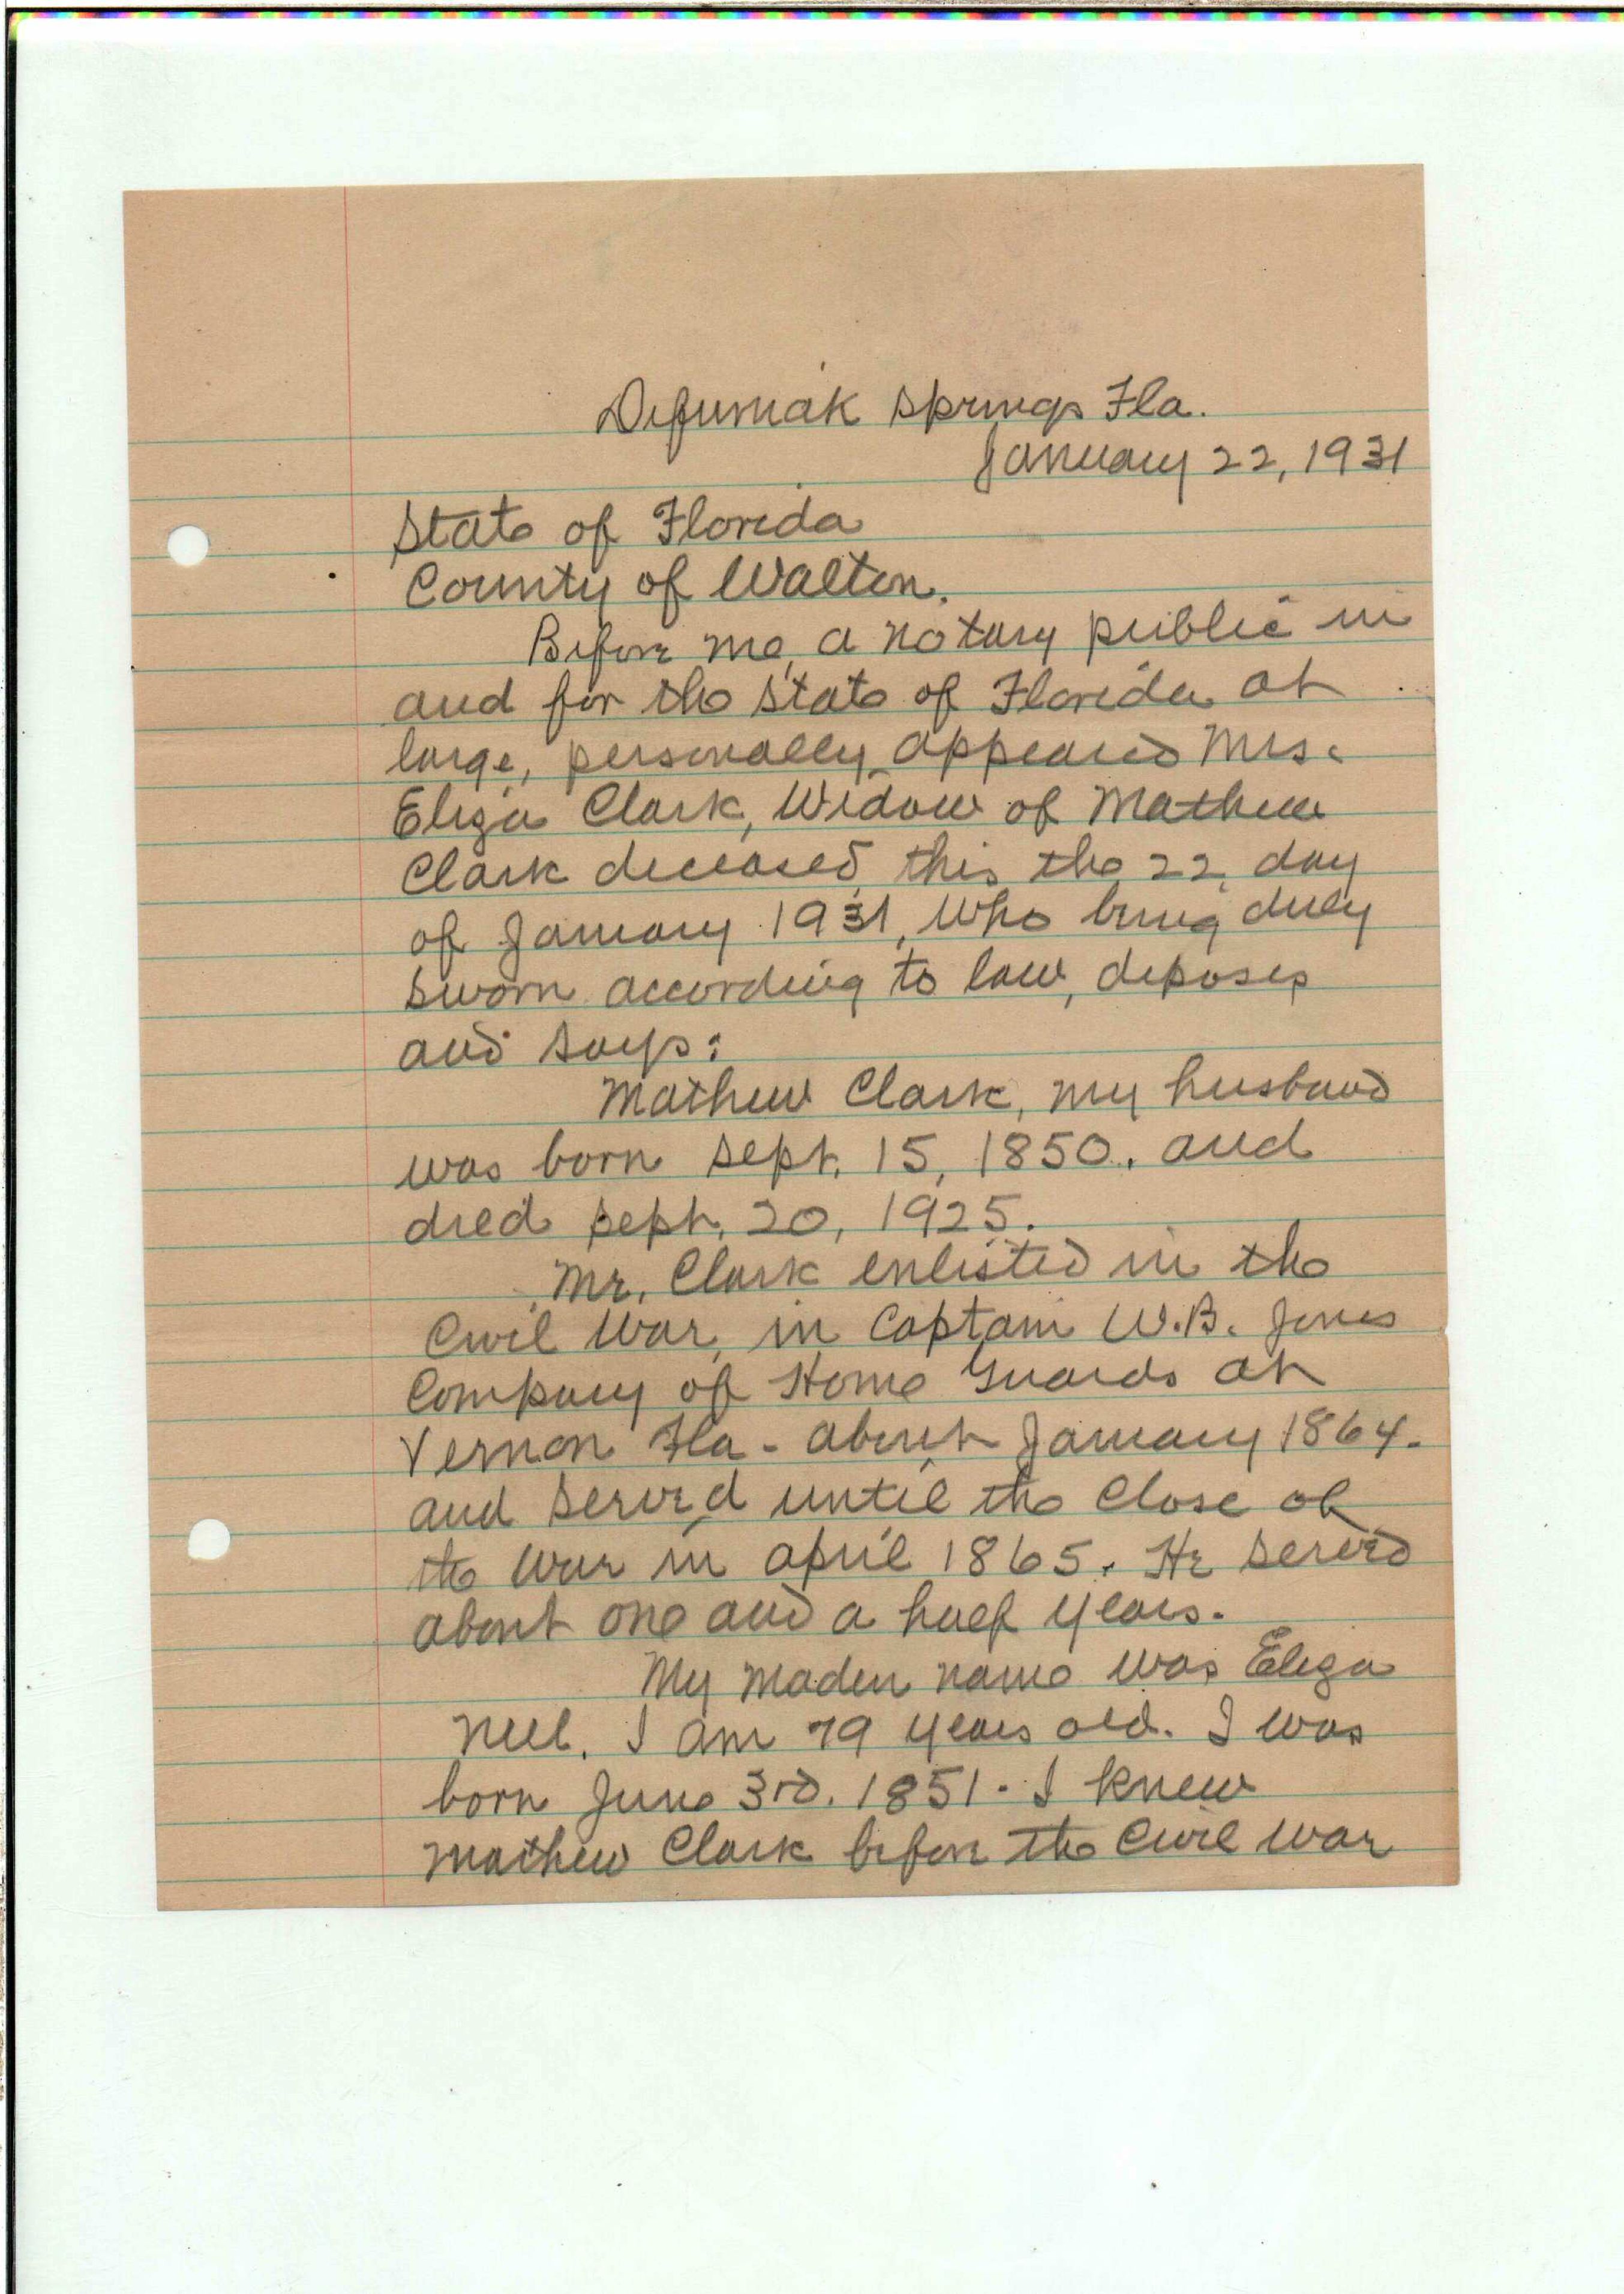 Defuniak Springs Fla.
January 22, 1931
State of Florida
County of Walton.
Before me, a notary public in
and for the State of Florida at
large, personally appeared Mrs.
Eliza Clark, Widow of Mathew
Clark deceased, this the 22, day
of January 1931, who being duly
sworn according to law, deposes
and says:
Mathew Clark, my husband
was born Sept. 15, 1850, and
died Sept. 20, 1925.
Mr. Clark enlisted in the
Civil War, in Captain W.B. Jones
Company of Home Guards at
Vernon Fla - about January 1864.
and served until the Close of
the War in April 1865. He served
about one and a half years.
My maden name was Eliza
Neel. I am 79 years old. I was
born June 3rd. 1851. I knew
Mathew Clark before the Civil War